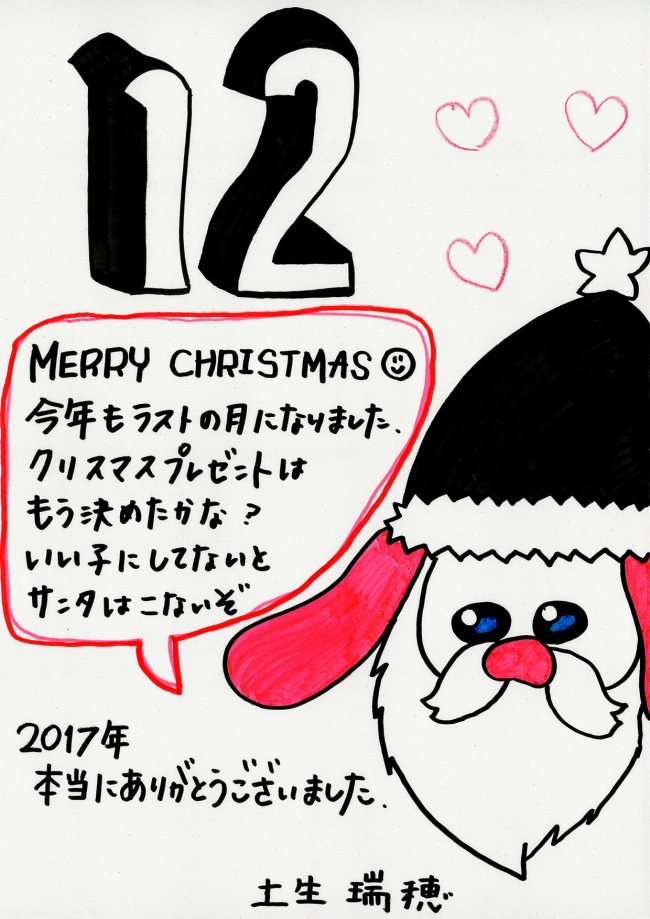 12
MERRY CHRISTMAS
今年もラストの月になりました.
クリスマスプレゼントは
もう決めたかな？
いい子にしてないと
サンタはこないぞ
2017年
本当にありがとうございました.
土生 瑞穂